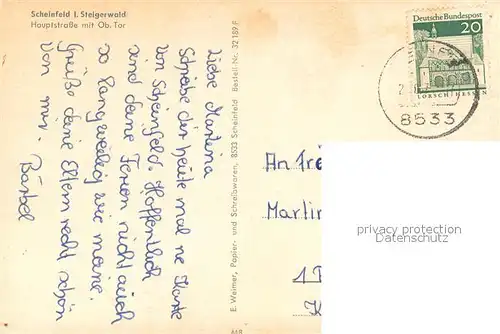 Scheinfeld i. Steigerwald
Hauptstraße mit Ob. Tor
Liebe Martina
Schreibe dir heute mal ne Karte
von Scheinfeld. Hoffentlich
sind deine Ferien nicht auch
so langweilig wie meine.
Grüße deine Eltern recht schön
von mir. Bärbel
E. Weimer, Papier- und Schreibwaren, 8533 Scheinfeld Bestell-Nr. 32 189 F
Deutsche Bundespost
20
LORSCH/HESSEN
8533
An
Martin
privacy protection
Datenschutz